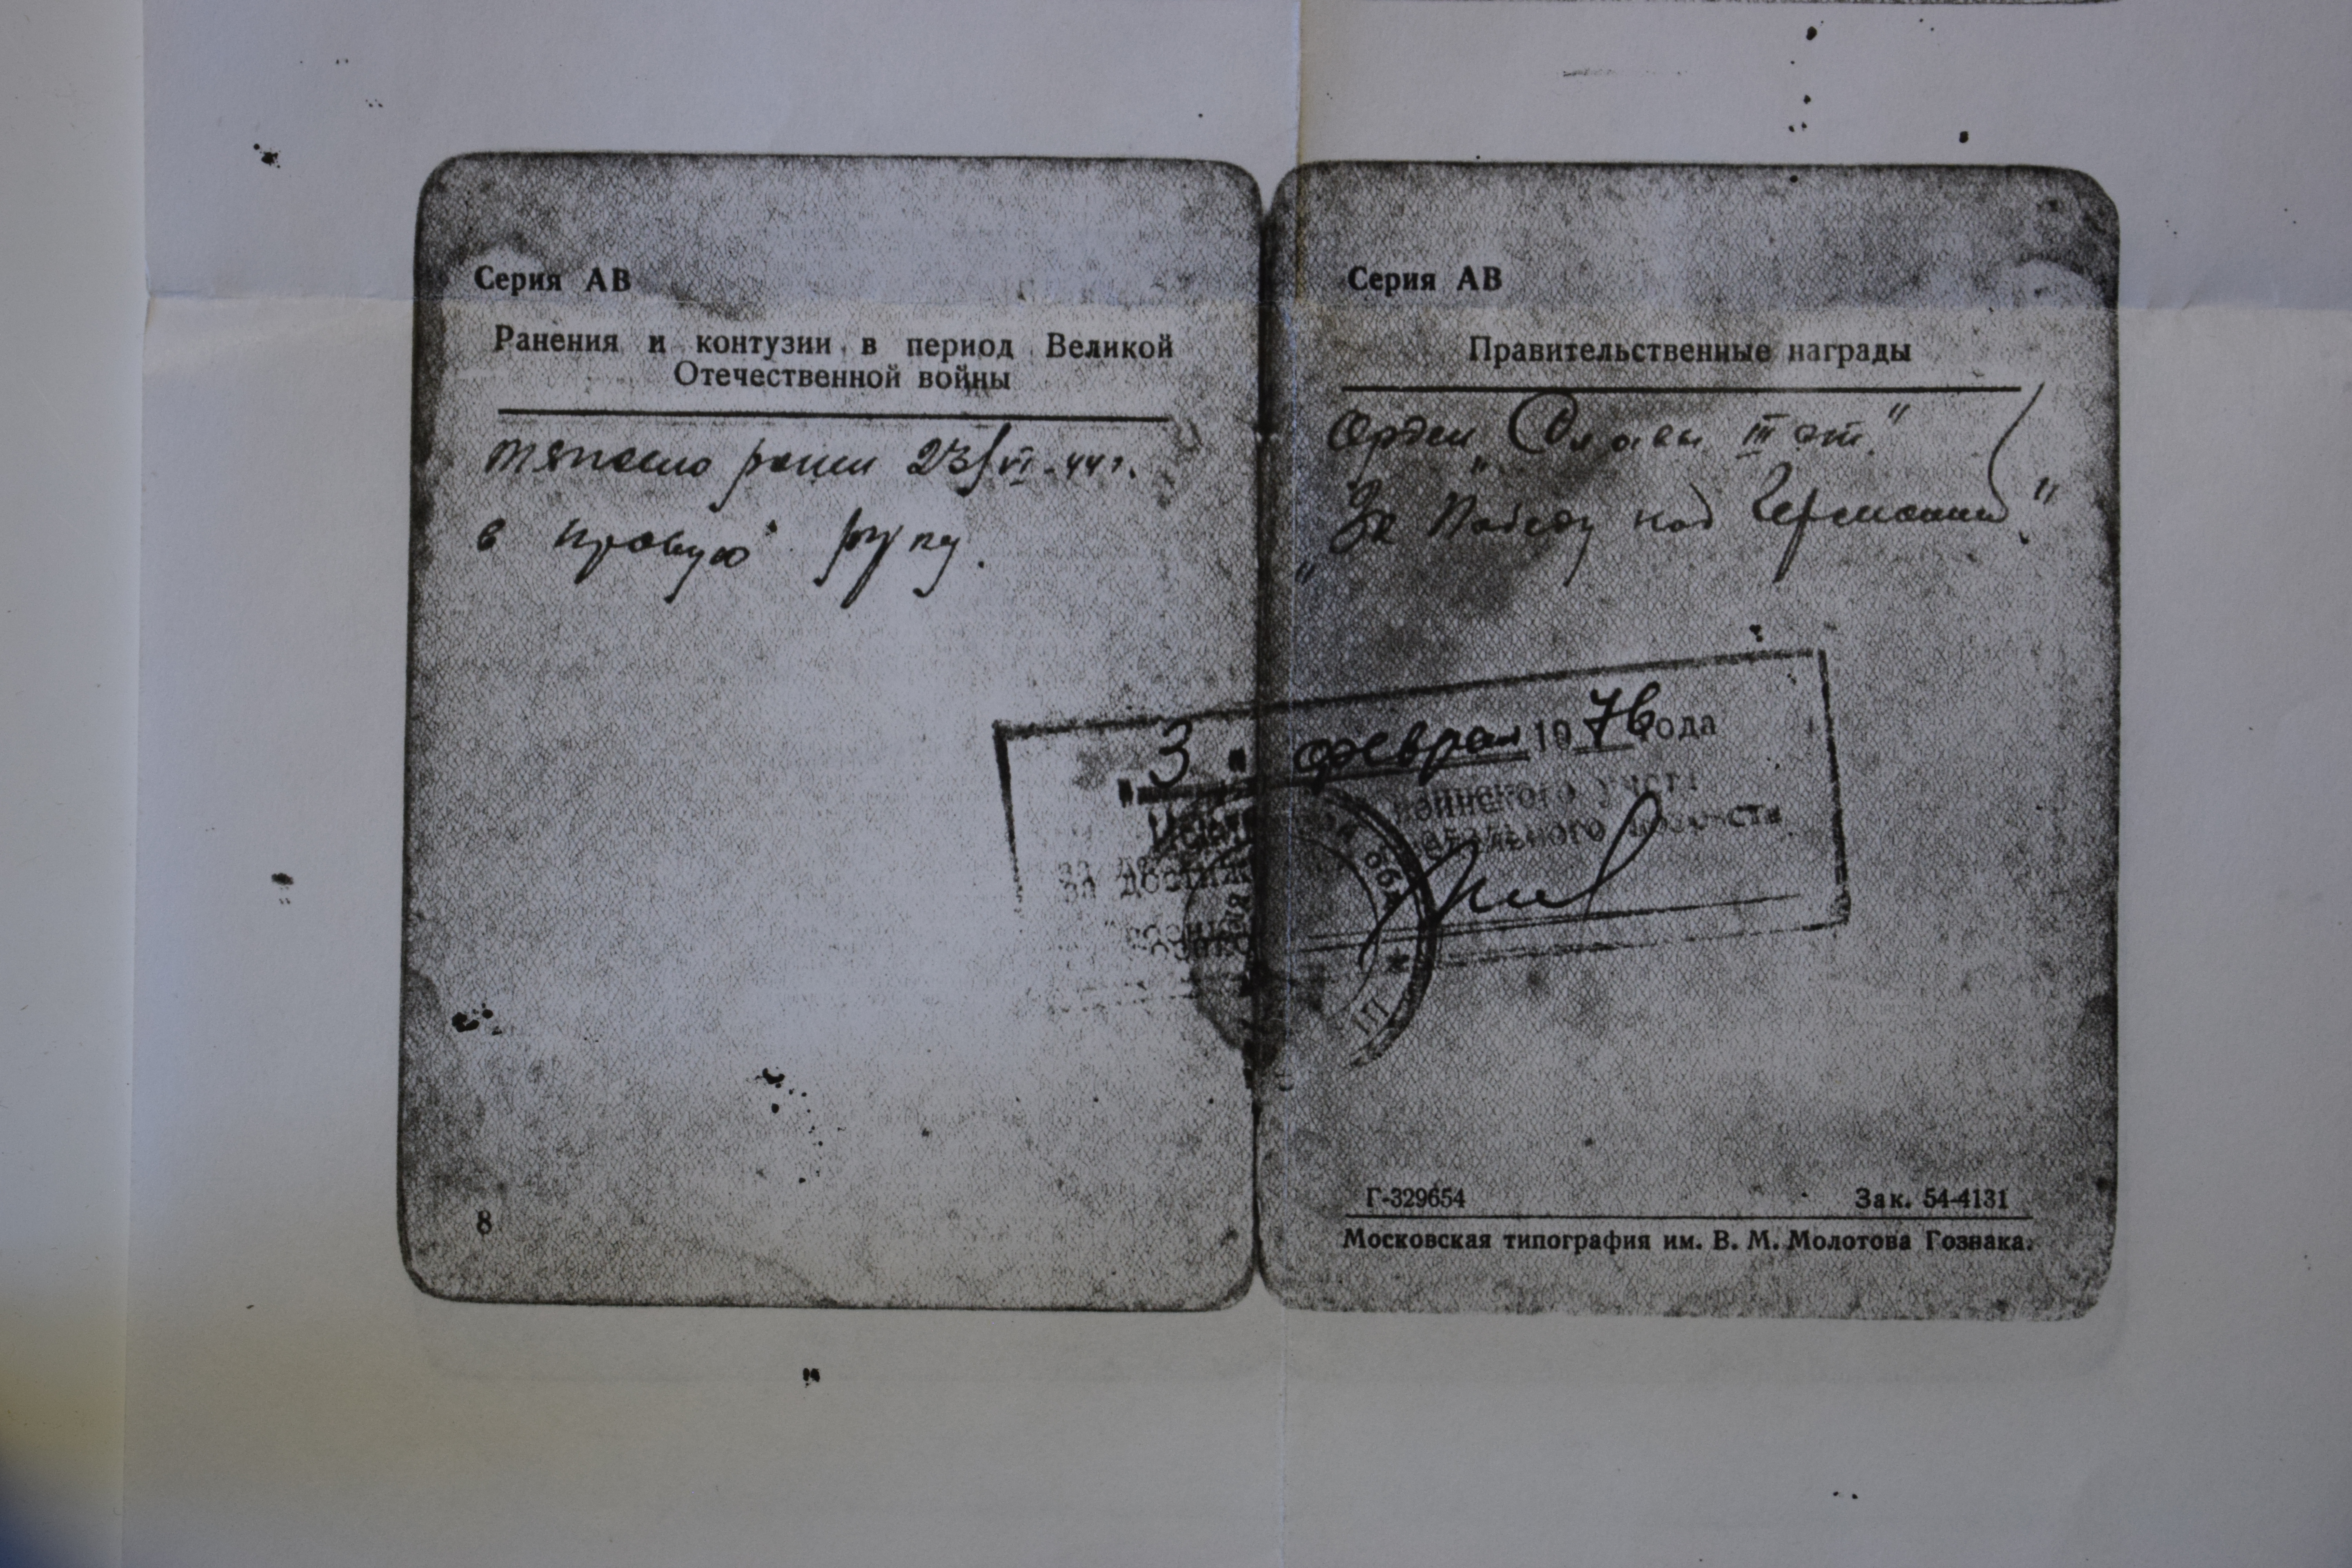 Серия АВ
Ранения и контузии в период Великой
Отечественной войны
тяжело ранен 23/VI-44 г.
в правую руку.
8
Серия АВ
Правительственные награды
Орден „Славы III ст."
„За Победу над Германией."
"3" феврал 1976 года
воинского учета
за достиж
военко
обл
Г-329654 Зак. 54-4131
Московская типография им. В. М. Молотова Гознака.